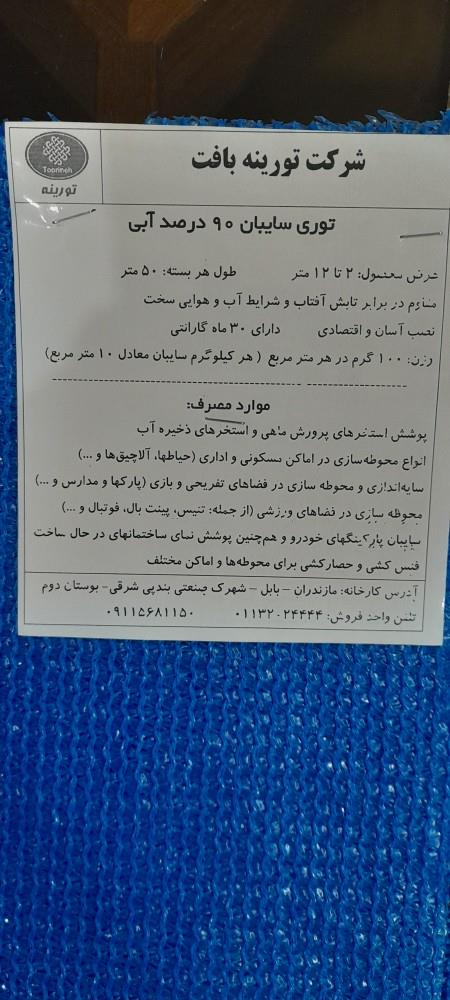 Toorineh
تورینه
شرکت تورینه بافت
توری سایبان ۹۰ درصد آبی
عرض معمول: ۲ تا ۱۲ متر طول هر بسته: ۵۰ متر
مقاوم در برابر تابش آفتاب و شرایط آب و هوایی سخت
نصب آسان و اقتصادی دارای ۳۰ ماه گارانتی
وزن: ۱۰۰ گرم در هر متر مربع ( هر کیلوگرم سایبان معادل ۱۰ متر مربع)
موارد مصرف:
پوشش استخرهای پرورش ماهی و استخرهای ذخیره آب
انواع محوطه‌سازی در اماکن مسکونی و اداری (حیاطها، آلاچیق‌ها و ...)
سایه‌اندازی و محوطه سازی در فضاهای تفریحی و بازی (پارکها و مدارس و ...)
محوطه سازی در فضاهای ورزشی (از جمله: تنیس، پینت بال، فوتبال و ...)
سایبان پارکینگهای خودرو و همچنین پوشش نمای ساختمانهای در حال ساخت
فنس کشی و حصارکشی برای محوطه‌ها و اماکن مختلف
آدرس کارخانه: مازندران – بابل – شهرک صنعتی بندپی شرقی- بوستان دوم
تلفن واحد فروش: ۰۱۱۳۲۰۲۴۴۴۴ ۰۹۱۱۵۶۸۱۱۵۰